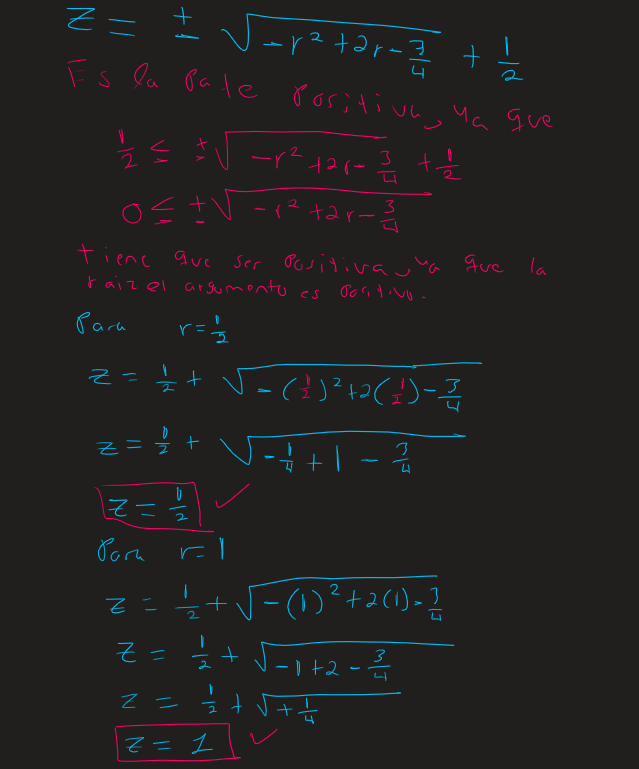 z = ± √(-r² + 2r - 3/4) + 1/2
Es la Pate Positiva, ya que
1/2 ≤ ±√(-r² + 2r - 3/4) + 1/2
0 ≤ ±√(-r² + 2r - 3/4)
tiene que ser Positiva, ya que la
raiz el argumento es Positivo.
Para r = 1/2
z = 1/2 + √(-(1/2)² + 2(1/2) - 3/4)
z = 1/2 + √(-1/4 + 1 - 3/4)
z = 1/2 ✓
Para r = 1
z = 1/2 + √(-(1)² + 2(1) - 3/4)
z = 1/2 + √(-1 + 2 - 3/4)
z = 1/2 + √(+1/4)
z = 1 ✓